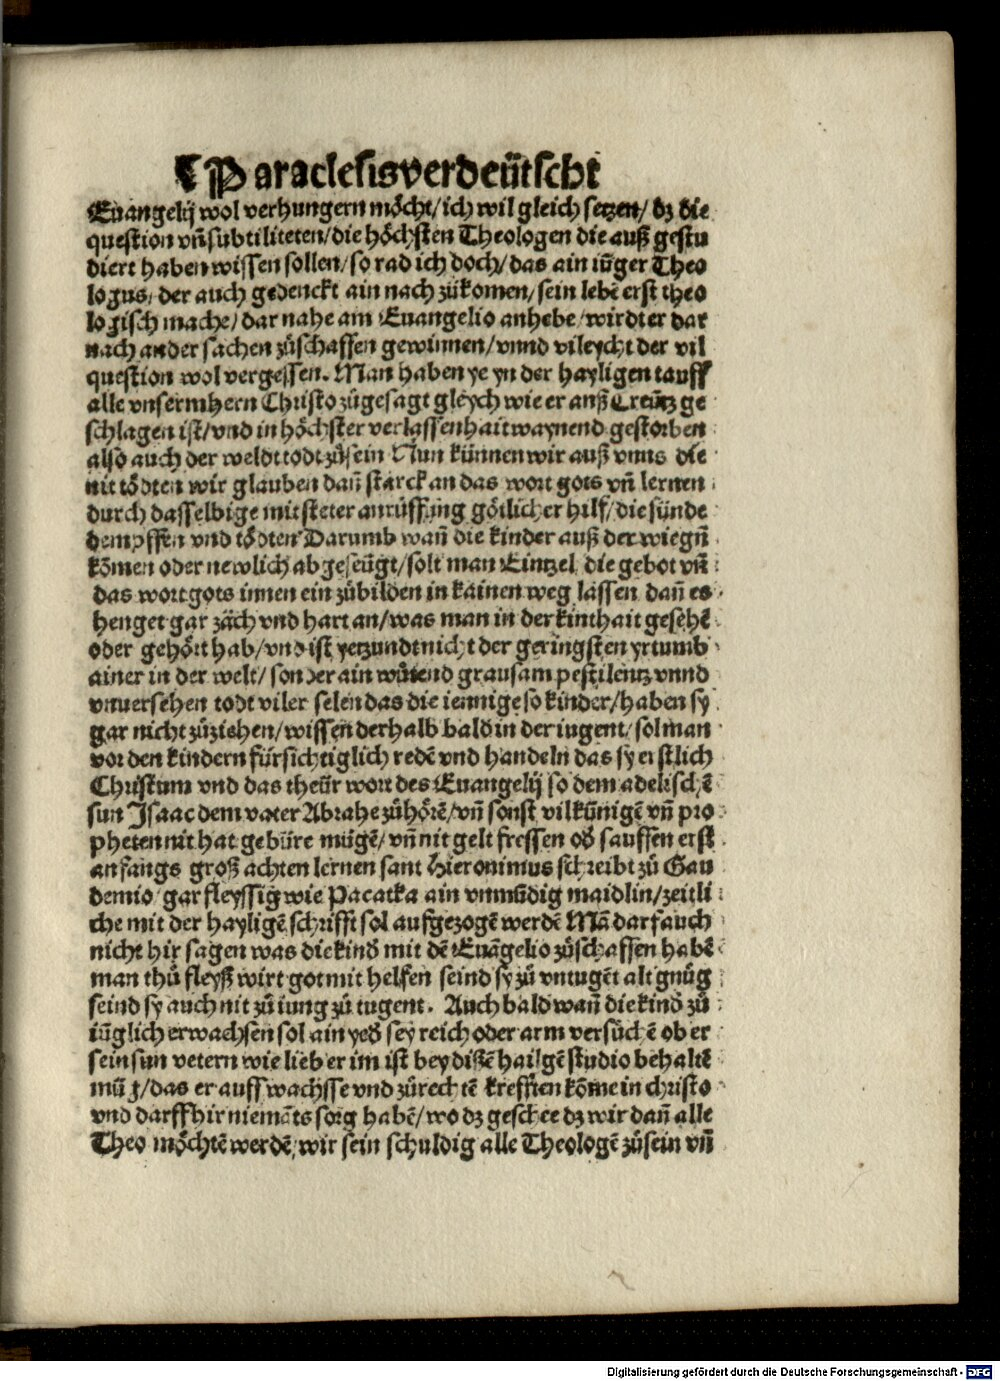 ¶ Paraclesis verdeütscht
Euangelij wol verhungern möcht/ ich wil gleich setzen/ dz die
question vñ subtiliteten/ die höchsten Theologen die auß gestu
diert haben wissen sollen/ so rad ich doch/ das ain iũger Theo
logus/ der auch gedenckt ain nach zůkomen/ sein lebẽ erst theo
logisch mache/ dar nahe am Euangelio anhebe/ wirdt er dar
nach ander sachen zůschaffen gewinnen/ vnnd vileycht der vil
question wol vergessen. Man haben ye yn der hayligen tauff
alle vnserm hern Christo zůgesagt gleych wie er anß Creütz ge
schlagen ist/ vnd in höchster verlassenhait waynend gestorben
also auch der weldt todt zůsein Nun künnen wir auß vnns die
nit tödten wir glauben dañ starck an das wort gots vñ lernen
durch dasselbige mit steter anrüffung götlicher hilf/ die sünde
dempffen vnd tödten Darumb wañ die kinder auß der wiegñ
kõmen oder newlich abgeseügt/ solt man Eintzel die gebot vñ
das wort gots innen ein zůbilden in kainen weg lassen dañ es
henget gar zäch vnd hart an/ was man in der kinthait gesehẽ
oder gehört hab/ vnd ist yetzundt nicht der geringsten yrtumb
ainer in der welt/ sonder ain wůtend grausam pestilentz vnnd
vnuersehen todt viler selen das die iennige so kinder/ haben sy
gar nicht zůziehen/ wissen derhalb bald in der iugent/ sol man
vor den kindern fürsichtiglich redẽ vnd handeln das sy erstlich
Christum vnd das theür wort des Euangelij so dem adelischẽ
sun Isaac dem vater Abrahe zůhörẽ/ vñ sonst vil künigẽ vñ pro
pheten nit hat gebüre mügẽ/ vñ nit gelt fressen od sauffen erst
anfangs groß achten lernen sant Hieronimus schreibt zů Gau
demio/ gar fleyssig wie Pacatka ain vnmũdig maidlin/ zeitli
che mit der hayligẽ schrifft sol aufgezogẽ werdẽ Mã darf auch
nicht hir sagen was die kind mit dẽ Euãgelio zůschaffen habẽ
man thů fleyß wirt got mit helfen seind sy zů vntugẽt alt gnůg
seind sy auch nit zů iung zů tugent. Auch bald wañ die kind zů
iũglich erwachsen sol ain yed sey reich oder arm versůchẽ ob er
sein sun vetern wie lieb er im ist bey dißẽ hailgẽ studio behaltẽ
müg/ das er auffwachsse vnd zůrechtẽ krefften kõme in christo
vnd darff hir niemãts sorg habẽ/ wo dz geschee dz wir dañ alle
Theo möchtẽ werdẽ/ wir sein schuldig alle Theologẽ zůsein vñ
Digitalisierung gefördert durch die Deutsche Forschungsgemeinschaft - DFG